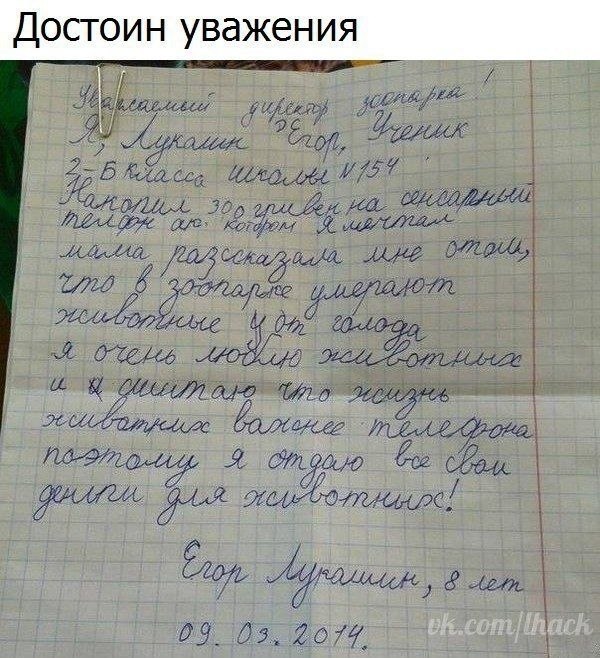 Достоин уважения
Уважаемый директор зоопарка!
Я, Лукашин Егор, Ученик
2-Б класса школы №154
Накопил 300 гривен на сенсарный
телфон аю котором я мечтал
мама разсказала мне отом,
что в зоопарке умерают
животные от голода
я очень люблю животных
и сшитаю что жизнь
животних важнее телефона
поэтому я отдаю все свои
деньги для животных!
Егор Лукашин, 8 лет
09. 03. 2014.
vk.com/lhack